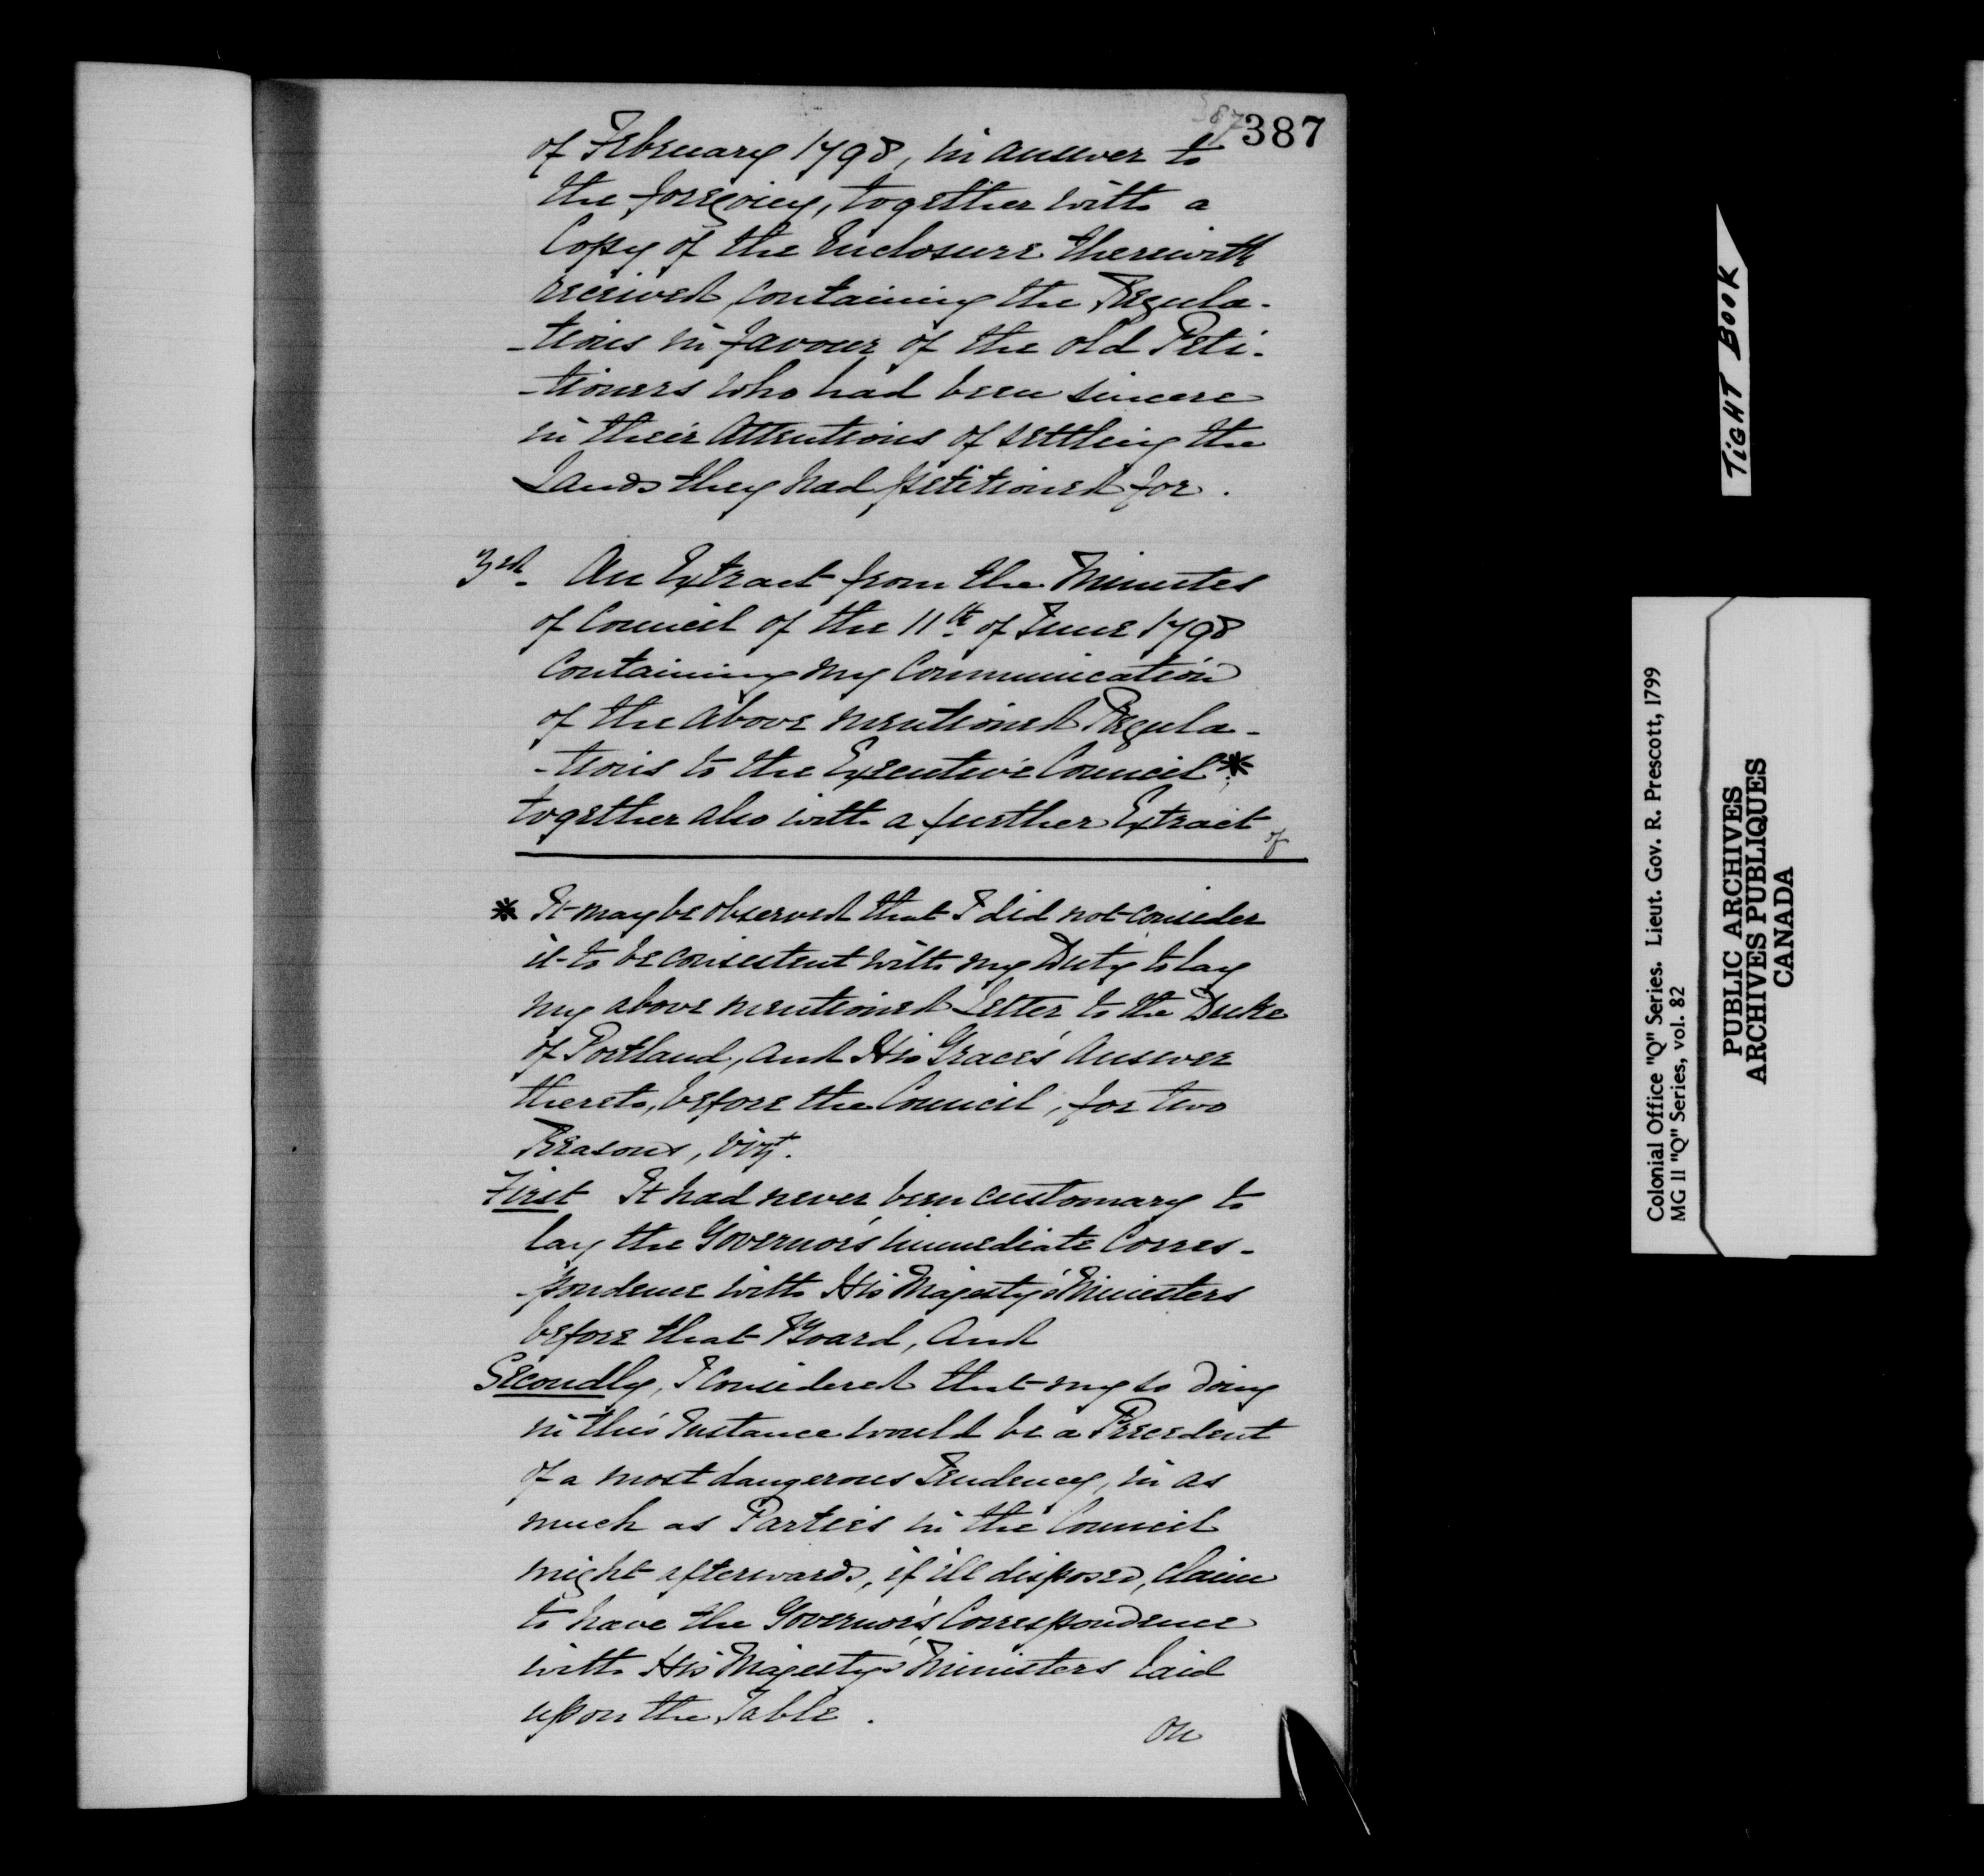 387
387
of February 1798, in answer to
the foregoing, together with a
Copy of the Enclosure therewith
received, containing the Regula-
-tions in favour of the old Peti-
-tioners who had been sincere
in their Attentions of settling the
Lands they had petitioned for.
3rd. An Extract from the Minutes
of Council of the 11th of June 1798
Containing my Communication
of the above mentioned Regula-
-tions to the Executive Council *,
together also with a further Extract
of
* It may be observed that I did not consider
it to be consistent with my Duty to lay
my above mentioned Letter to the Duke
of Portland, and His Grace's Answer
thereto, before the Council, for two
Reasons, vizt.
First It had never been customary to
lay the Governor's immediate Corres-
-pondence with His Majesty's Ministers
before that Board, And
Secondly, I considered that my so doing
in this Instance would be a Precedent
of a most dangerous Tendency, in as
much as Parties in the Council
might afterwards, if ill disposed, claim
to have the Governor's Correspondence
with His Majesty's Ministers laid
upon the Table.
on
TIGHT BOOK
Colonial Office "Q" Series. Lieut. Gov. R. Prescott, 1799
MG 11 "Q" Series, vol. 82
PUBLIC ARCHIVES
ARCHIVES PUBLIQUES
CANADA